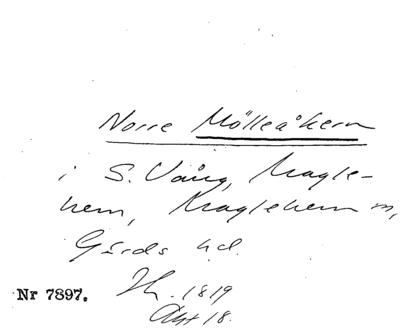 Norre Mölleåkern
i S. Vång, Magle-
hem, Maglehems sn,
Gärds hd.
Nr 7897. Lh. 1819
Akt 18.